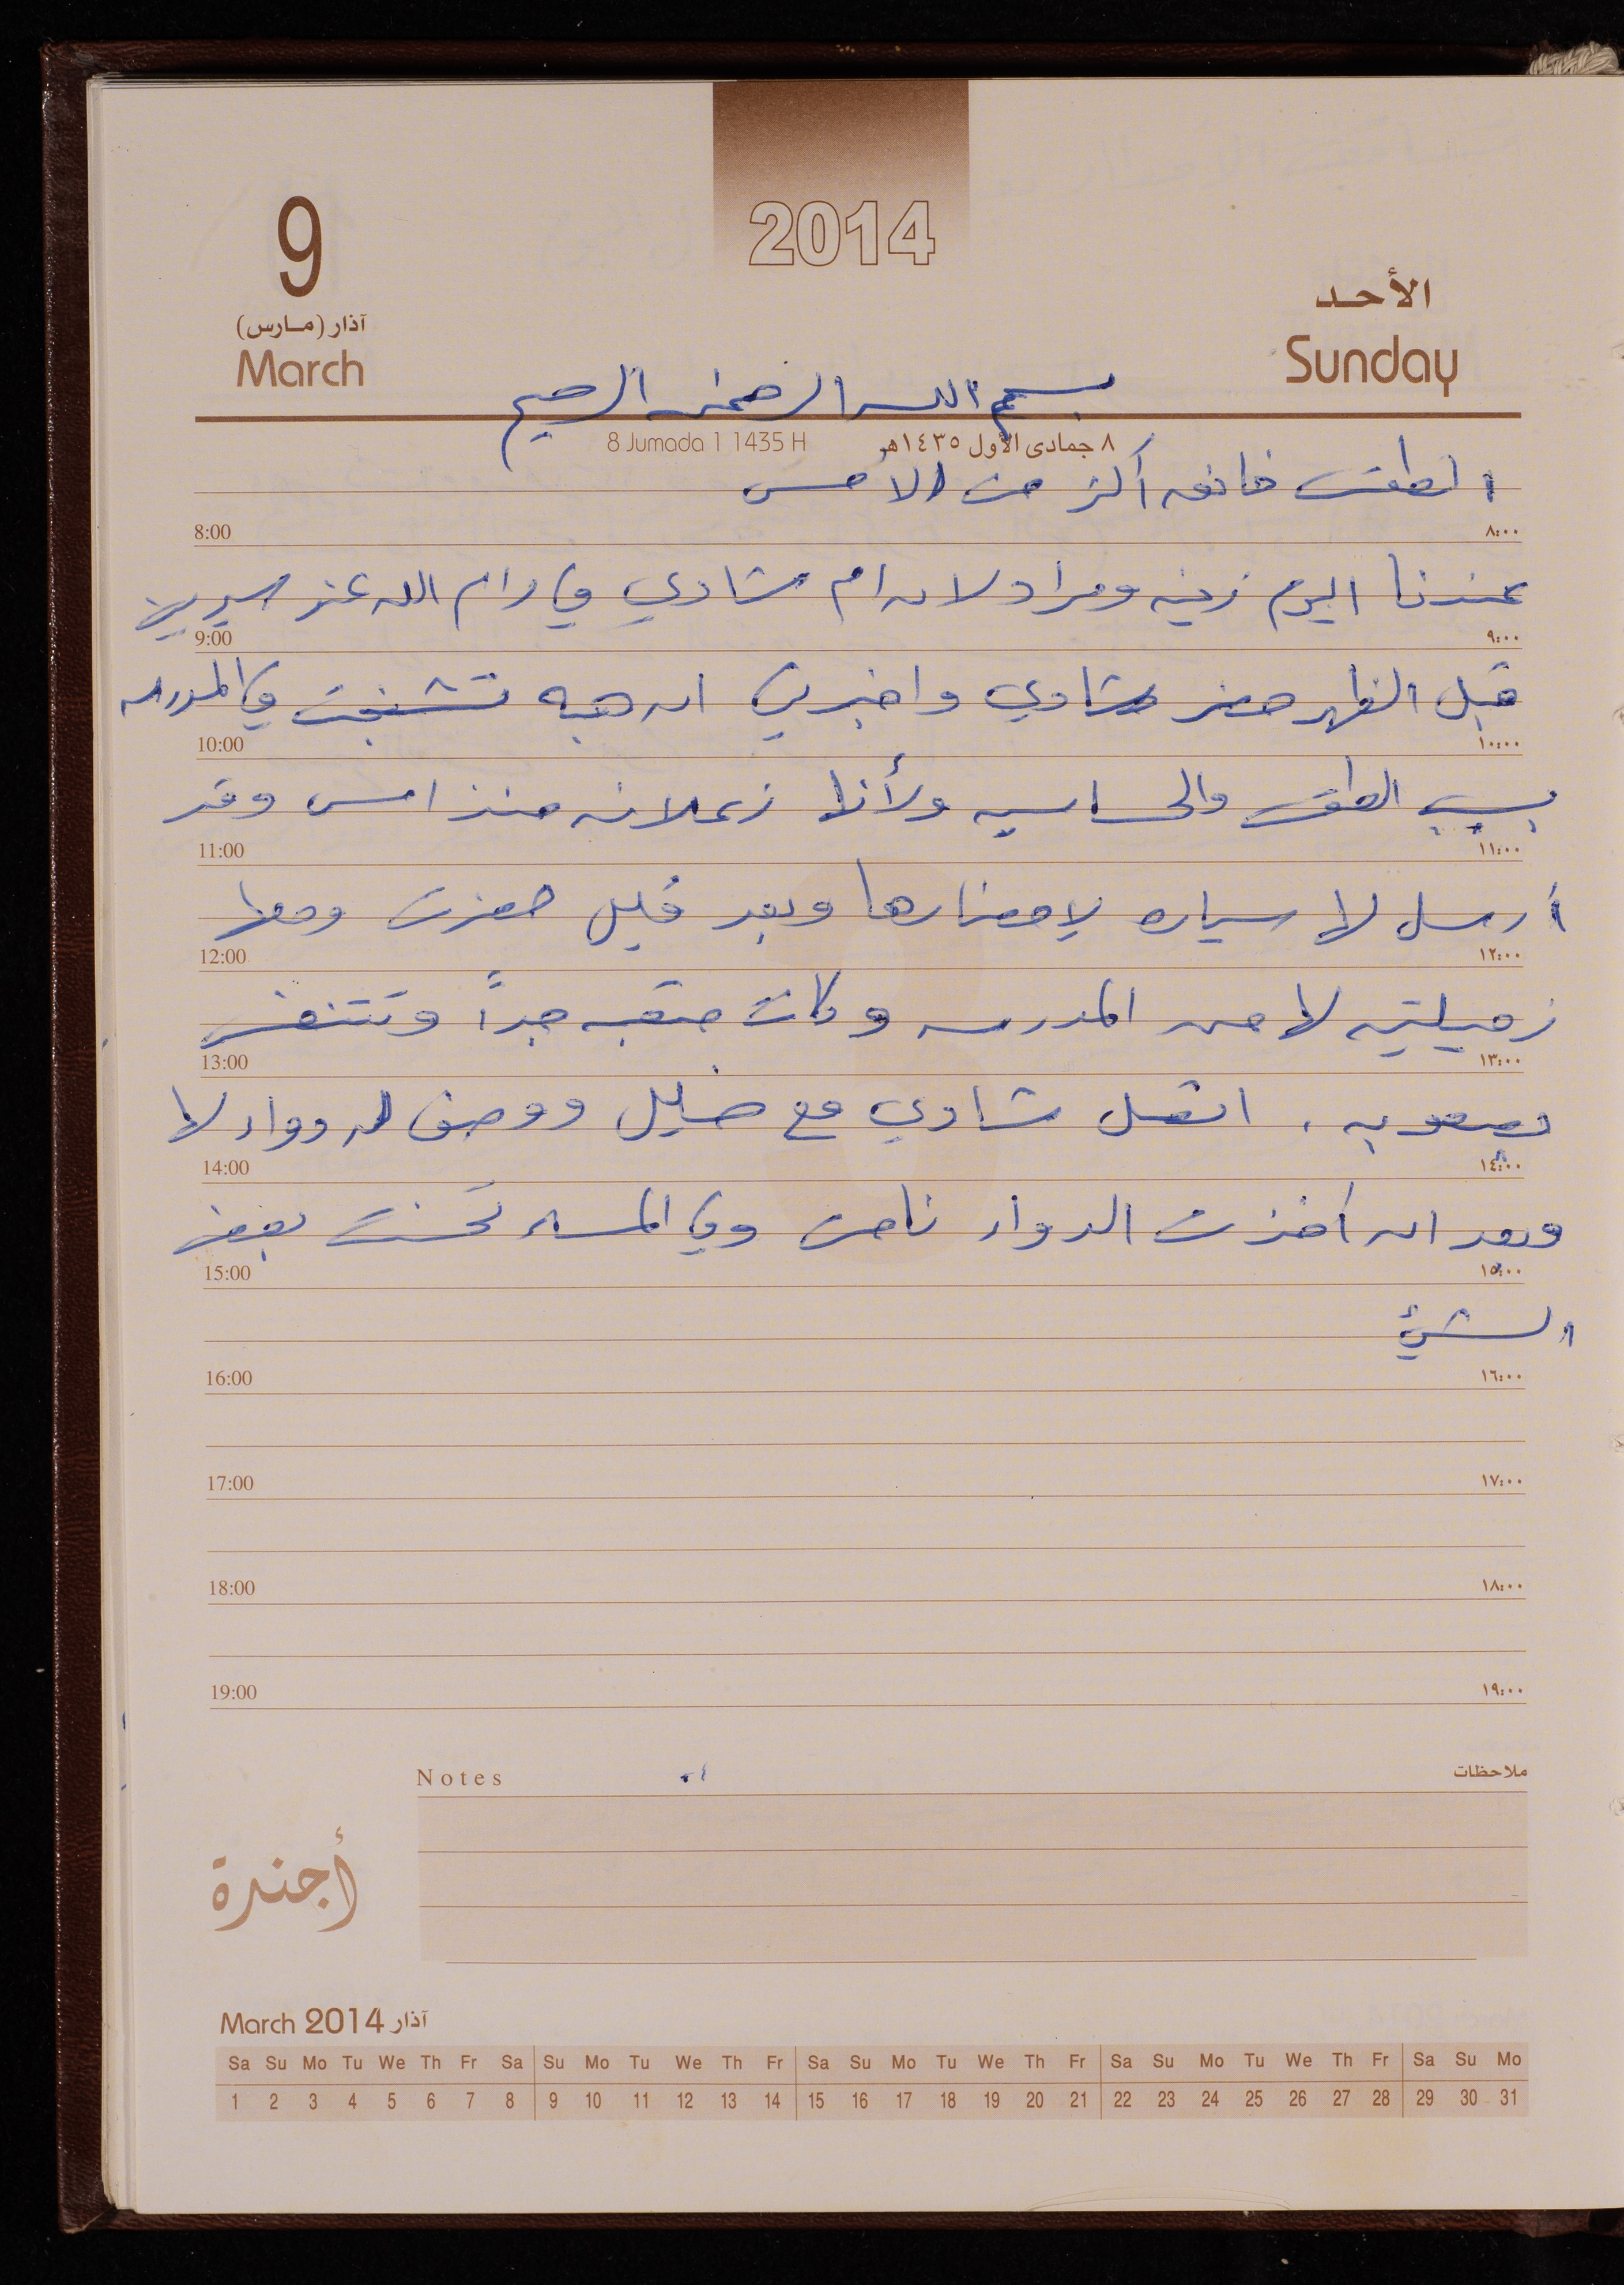 2014
9
الأحد
آذار (مارس)
Sunday
March
بسم الله الرحمن الرحيم
8 Jumada 1 1435 H
٨ جمادى الأول ١٤٣٥هـ
الطقس خانق أكثر من الامس
8:00 ٨:٠٠
عندنا اليوم زينه ومراد لان ام شادي في رام الله عند سيرين
9:00 ٩:٠٠
قبل الظهر حضر شادي واخبرني ان هبه تشنجت في المدرسه
10:00 ١٠:٠٠
بسبب الطقس والحساسيه ولأنها زعلانه منذ امس وقد
11:00 ١١:٠٠
أرسل لها سياره لإحضارها وبعد قليل حضرت ومعها
12:00 ١٢:٠٠
زميلتيه لها من المدرسه وكانت متعبه جداً وتتنفس
13:00 ١٣:٠٠
بصعوبه . اتصل شادي مع خليل ووصف له دواء لها
14:00 ١٤:٠٠
وبعد ان أخذت الدواء نامت وفي المساء تحسنت بعض
15:00 ١٥:٠٠
الشيء
16:00 ١٦:٠٠
17:00 ١٧:٠٠
18:00 ١٨:٠٠
19:00 ١٩:٠٠
Notes ملاحظات
أجندة
March 2014 آذار
Sa Su Mo Tu We Th Fr Sa Su Mo Tu We Th Fr Sa Su Mo Tu We Th Fr Sa Su Mo Tu We Th Fr Sa Su Mo
1 2 3 4 5 6 7 8 9 10 11 12 13 14 15 16 17 18 19 20 21 22 23 24 25 26 27 28 29 30 31